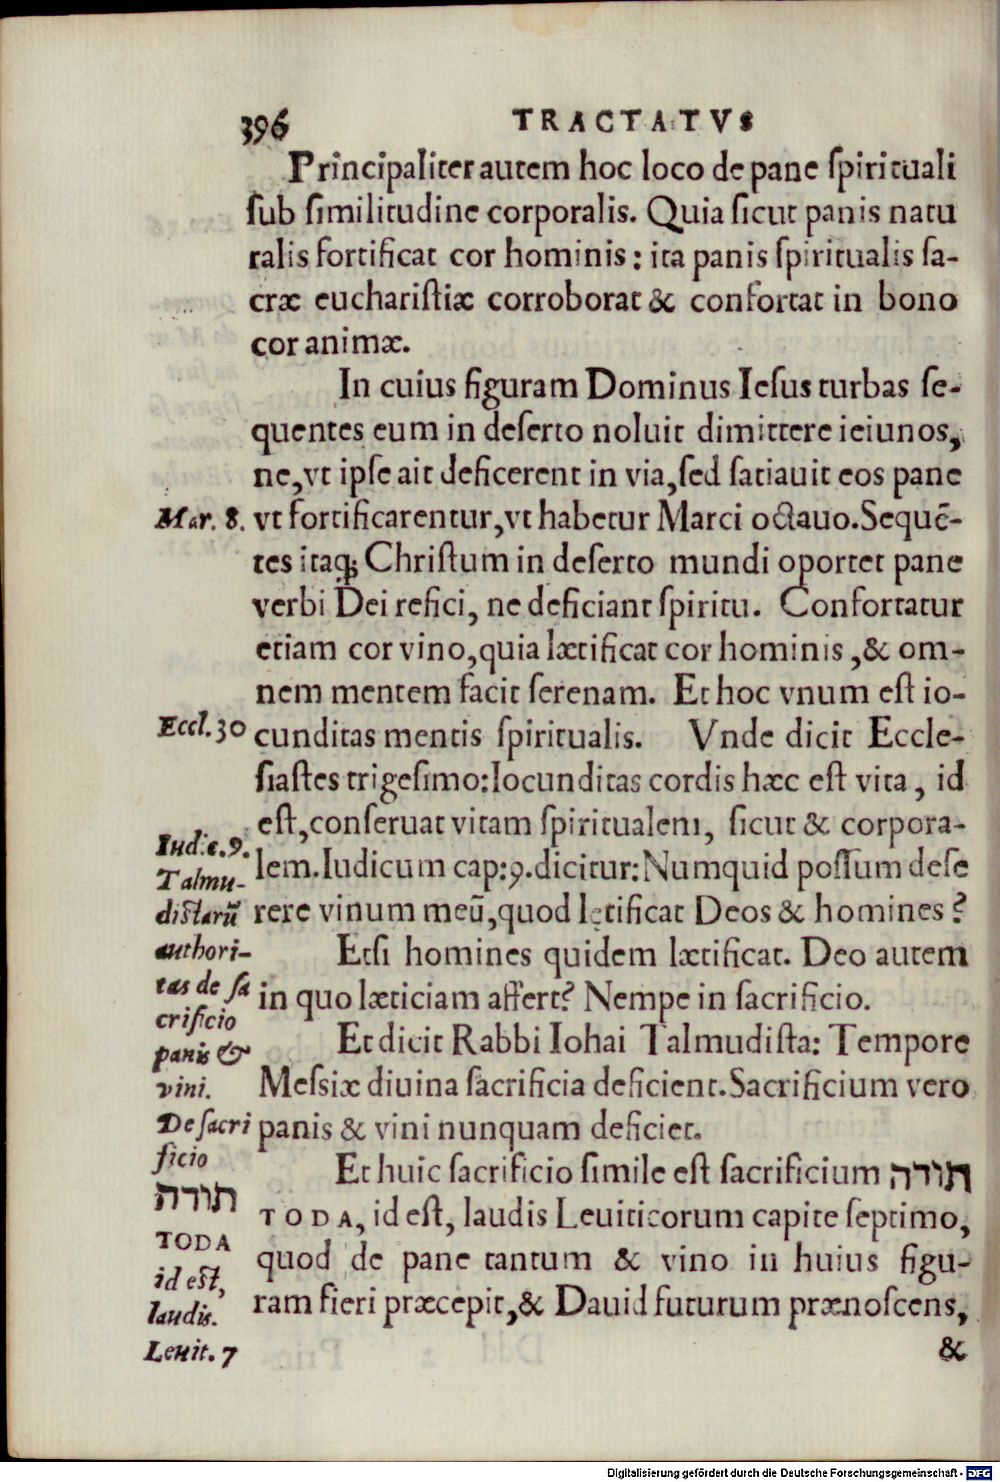 396 TRACTATVS
Principaliter autem hoc loco de pane ſpirituali
ſub ſimilitudine corporalis. Quia ſicut panis natu
ralis fortificat cor hominis: ita panis ſpiritualis ſa-
cræ euchariſtiæ corroborat & confortat in bono
cor animæ.
In cuius figuram Dominus Ieſus turbas ſe-
quentes eum in deſerto noluit dimittere ieiunos,
ne, vt ipſe ait deficerent in via, ſed ſatiauit eos pane
Mar. 8.
vt fortificarentur, vt habetur Marci octauo. Sequẽ-
tes itaq; Chriſtum in deſerto mundi oportet pane
verbi Dei refici, ne deficiant ſpiritu. Confortatur
etiam cor vino, quia lætificat cor hominis, & om-
nem mentem facit ſerenam. Et hoc vnum eſt io-
Eccl. 30
cunditas mentis ſpiritualis. Vnde dicit Eccle-
ſiaſtes trigeſimo: Iocunditas cordis hæc eſt vita, id
eſt, conſeruat vitam ſpiritualem, ſicut & corpora-
Iudic. 9.
lem. Iudicum cap: 9. dicitur: Numquid poſſum deſe
rere vinum meũ, quod lętificat Deos & homines?
Talmu-
diſtarũ
authori-
tas de ſa
crificio
panis &
vini.
Etſi homines quidem lætificat. Deo autem
in quo læticiam affert? Nempe in ſacrificio.
Et dicit Rabbi Iohai Talmudiſta: Tempore
Meſsiæ diuina ſacrificia deficient. Sacrificium vero
panis & vini nunquam deficiet.
De ſacri
ficio
תורה
TODA
id eſt,
laudis.
Leuit. 7
Et huic ſacrificio ſimile eſt ſacrificium תורה
TODA, id eſt, laudis Leuiticorum capite ſeptimo,
quod de pane tantum & vino in huius figu-
ram fieri præcepit, & Dauid futurum prænoſcens,
&
Digitalisierung gefördert durch die Deutsche Forschungsgemeinschaft - DFG